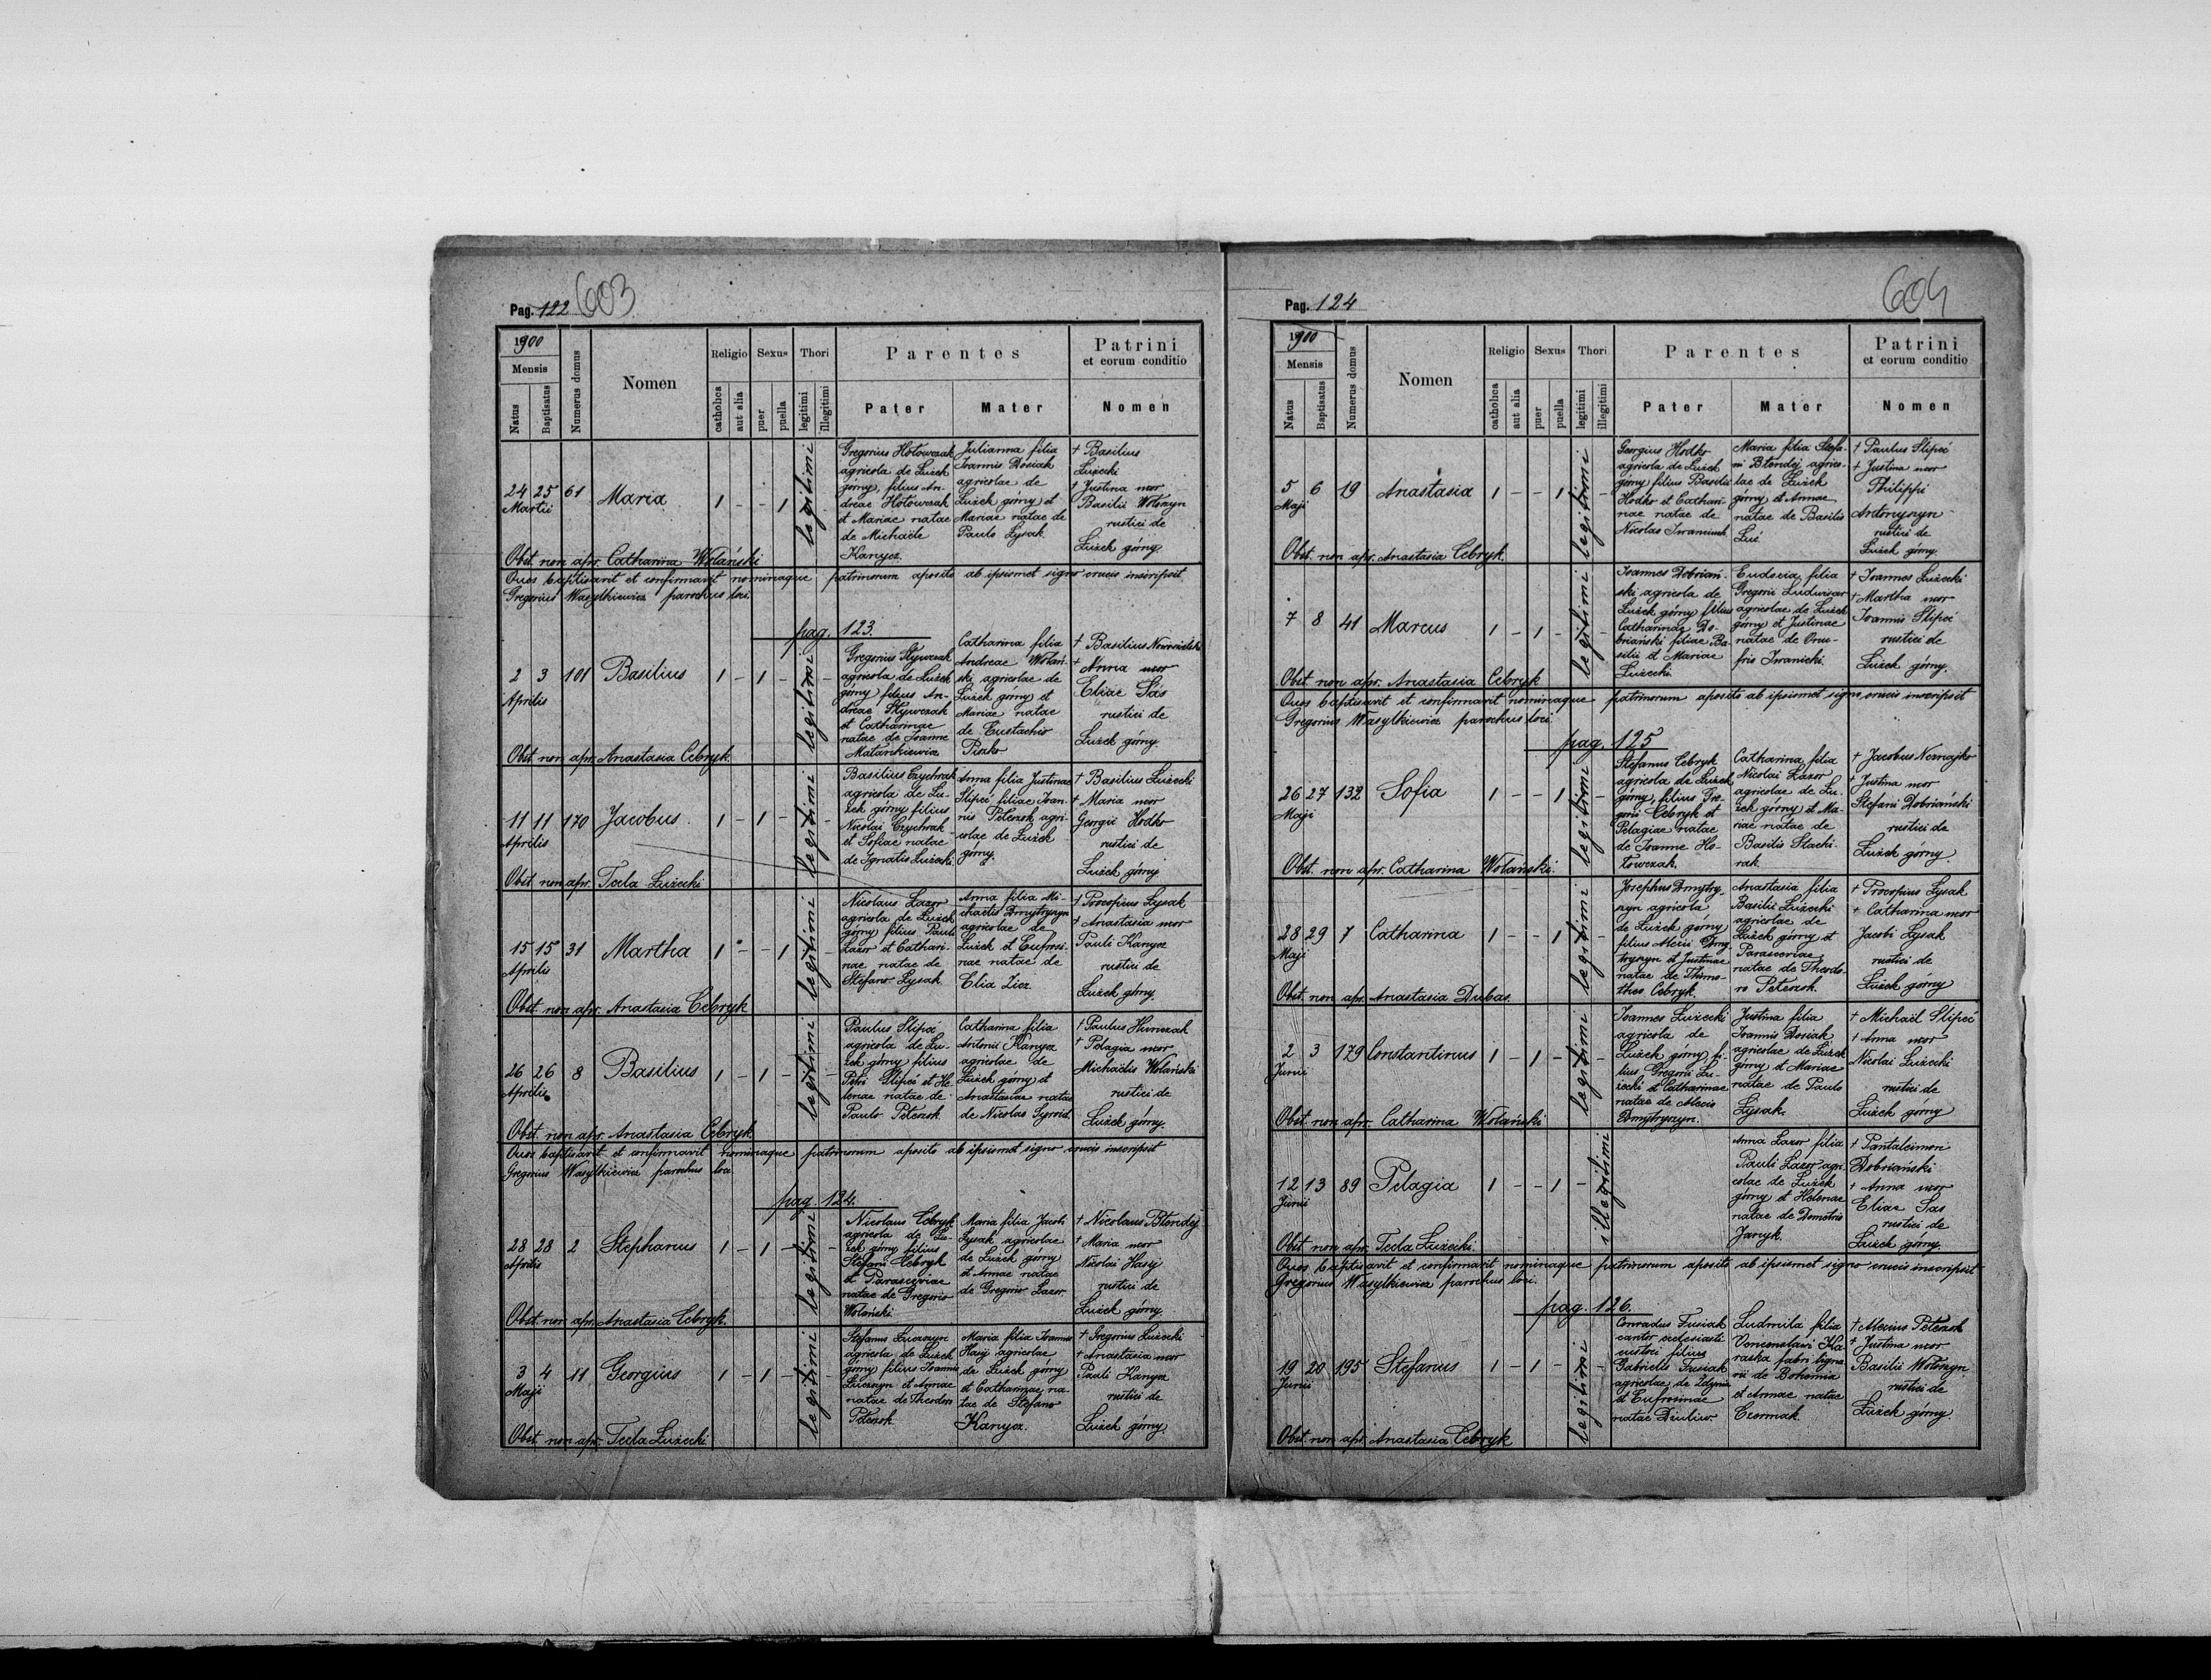 Pag. 122 603
1900
Mensis
Natus
Baptisatus
Numerus domus
Nomen
Religio
catholica
aut alia
Sexus
puer
puella
Thori
legitimi
illegitimi
Parentes
Pater
Mater
Patrini
et eorum conditio
Nomen
24 25 61 Maria 1 - - 1 legitimi -
Martii
Gregorius Hołowczak
agricola de Łużek
górny, filius An-
dreae Hołowczak
et Mariae natae
de Michaele
Kanycz
Julianna filia
Joannis Dosiak
agricolae de
Łużek górny et
Mariae natae de
Paulo Łysak
† Basilius
Łużecki
† Justina uxor
Basilii Wołszyn
rustici de
Łużek górny.
Obst. non apr. Catharina Wolański
Quos baptisavit et confirmavit nominaque patrinorum aposito ab ipsismet signo crucis inscripsit
Gregorius Wasylkiewicz parochus loci.
pag. 123.
2 3 101 Basilius 1 - 1 - legitimi -
Aprilis
Gregorius
agricola de Łużek
górny filius An-
dreae
et Catharinae
natae de Joanne
Matankiewicz
Catharina filia
Andreae Wolań-
ski agricolae de
Łużek górny et
Mariae natae
de Eustachio
Piszko
† Basilius
† Anna uxor
Eliae Sas
rustici de
Łużek górny.
Obst. non apr. Anastasia Cebryk.
11 11 170 Jacobus 1 - 1 - legitimi -
Aprilis
Basilius Czychrak
agricola de Łu-
żek górny filius
Nicolai Czychrak
et Sofiae natae
de Ignatio Łużecki
Anna filia Justinae
Slipeć filiae Joan-
nis Petezsok agri-
colae de Łużek
górny.
† Basilius Łużecki
† Maria uxor
Georgii Hodko
rustici de
Łużek górny
Obst. non apr. Tecla Łużecki
15 15 31 Martha 1 - - 1 legitimi -
Aprilis
Nicolaus Łazor
agricola de Łużek
górny filius Pauli
Łazor et Cathari-
nae natae de
Stefano Łysak
Anna filia Mi-
chaelis Dmytryszyn
agricolae de
Łużek et Eufrosi-
nae natae de
Elia
† Procopius Łysak
† Anastasia uxor
Pauli Kanycz
rustici de
Łużek górny.
Obst. non apr. Anastasia Cebryk
26 26 8 Basilius 1 - 1 - legitimi -
Aprilis
Paulus Slipeć
agricola de Łu-
żek górny filius
Petri Slipeć et He-
lenae natae de
Paulo Petezsok
Catharina filia
Antonii Kanycz
agricolae de
Łużek górny et
Anastasiae natae
de Nicolao
† Paulus
† Pelagia uxor
Michaelis Wolański
rustici de
Łużek górny.
Obst. non apr. Anastasia Cebryk
Quos baptisavit et confirmavit nominaque patrinorum aposito ab ipsismet signo crucis inscripsit
Gregorius Wasylkiewicz parochus loci
pag. 124.
28 28 2 Stephanus 1 - 1 - legitimi -
Aprilis
Nicolaus Cebryk
agricola de Łu-
żek górny filius
Stefani Cebryk
et Parasceviae
natae de Gregorio
Wolański
Maria filia Jacobi
Łysak agricolae
de Łużek górny
et Annae natae
de Gregorio Łazor
† Nicolaus Błondej
† Maria uxor
Nicolai Hasij
rustici de
Łużek górny.
Obst. non apr. Anastasia Cebryk.
3 4 11 Georgius 1 - 1 - legitimi -
Maji
Stefanus Łuczszyn
agricola de Łużek
górny filius Joannis
Łuczszyn et Annae
natae de Theodoro
Petezsok
Maria filia Joannis
Hasij agricolae
de Łużek górny
et Catharinae na-
tae de Stefano
Kanycz.
† Gregorius Łużecki
† Anastasia uxor
Pauli Kanycz
rustici de
Łużek górny
Obst. non apr. Tecla Łużecki.
Pag. 124 604
1900
Mensis
Natus
Baptisatus
Numerus domus
Nomen
Religio
catholica
aut alia
Sexus
puer
puella
Thori
legitimi
illegitimi
Parentes
Pater
Mater
Patrini
et eorum conditio
Nomen
5 6 19 Anastasia 1 - - 1 legitimi -
Maji
Georgius Hodko
agricola de Łużek
górny filius Basilii
Hodko et Cathari-
nae natae de
Nicolao
Maria filia Stefa-
ni Błondej agrico-
lae de Łużek
górny et Annae
natae de Basilio
† Paulus Slipeć
† Justina uxor
Philippi
Antonyszyn
rustici de
Łużek górny.
Obst. non apr. Anastasia Cebryk.
7 8 41 Marcus 1 - 1 - legitimi -
Joannes Dobriań-
ski agricola de
Łużek górny filius
Catharinae Do-
briański filiae Ba-
silii et Mariae
Łużecki.
Eudocia filia
Gregorii Ludwisar
agricolae de Łużek
górny et Justinae
natae de Onu-
frio Iwanicki.
† Joannes Łużecki
† Martha uxor
Joannis Slipeć
rustici de
Łużek górny.
Obst. non apr. Anastasia Cebryk
Quos baptisavit et confirmavit nominaque patrinorum aposito ab ipsismet signo crucis inscripsit
Gregorius Wasylkiewicz parochus loci.
pag. 125
26 27 132 Sofia 1 - - 1 legitimi -
Maji
Stefanus Cebryk
agricola de Łużek
górny, filius Gre-
gorii Cebryk et
Pelagiae natae
de Joanne Ho-
łowczak.
Catharina filia
Nicolai Łazor
agricolae de Łu-
żek górny et Ma-
riae natae de
Basilio Stachi-
rak
† Jacobus
† Justina uxor
Stefani Dobriański
rustici de
Łużek górny.
Obst. non apr. Catharina Wolański.
28 29 7 Catharina 1 - - 1 legitimi -
Maji
Josephus Dmytry-
szyn agricola
de Łużek górny
filius Alexii Dmy-
tryszyn et Justinae
natae de Thimo-
theo Cebryk.
Anastasia filia
Basilii Łużecki
agricolae de
Łużek górny et
Parasceviae
natae de Theodo-
ro Petezsok.
† Procopius Łysak
† Catharina uxor
Jacobi Łysak
rustici de
Łużek górny
Obst. non apr. Anastasia Dubas.
2 3 179 Constantinus 1 - 1 - legitimi -
Junii
Joannes Łużecki
agricola de
Łużek górny fi-
lius Gregorii Łu-
żecki et Catharinae
natae de Alexio
Dmytryszyn.
Justina filia
Joannis Dosiak
agricolae de Łużek
górny et Mariae
natae de Paulo
Łysak.
† Michaël Slipeć
† Anna uxor
Nicolai Łużecki
rustici de
Łużek górny
Obst. non apr. Catharina Wolański
12 13 89 Pelagia 1 - - 1 - illegitimi
Junii
Anna Łazor filia
Pauli Łazor agri-
colae de Łużek
górny et Helenae
natae de Demetrio
Janyk.
† Pantaleimon
Dobriański
† Anna uxor
Eliae Sas
rustici de
Łużek górny.
Obst. non apr. Tecla Łużecki.
Quos baptisavit et confirmavit nominaque patrinorum aposito ab ipsismet signo crucis inscripsit
Gregorius Wasylkiewicz parochus loci.
pag. 126.
19 20 195 Stefanus 1 - 1 - legitimi -
Junii
Conradus Fusiak
cantor ecclesiasti
filius
Gabrielis Fusiak
agricolae de Zdynia
et Eufrosinae
natae
Ludmila filia
Ka-
raska fabri ligna-
rii de Bohemia
et Annae natae
Czermak.
† Alexius Petezsok
† Justina uxor
Basilii Wołszyn
rustici de
Łużek górny.
Obst. non apr. Anastasia Cebryk